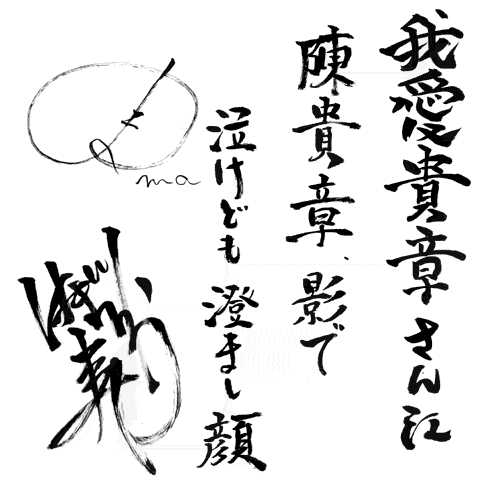 我愛貴章さん江
陳貴章、影で
泣けども澄まし顔
ma